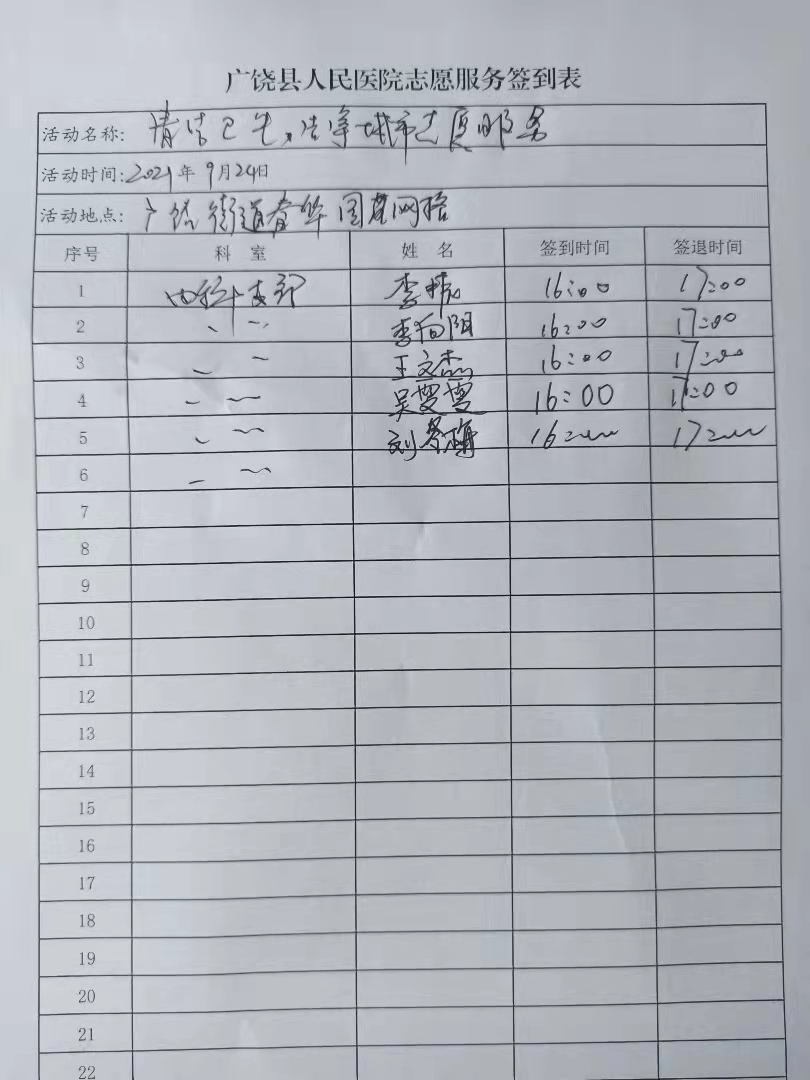 广饶县人民医院志愿服务签到表
活动名称: 清洁卫生,洁净城市志愿服务
活动时间:2021年9月24日
活动地点: 广饶街道春华园
序号 科室 姓名 签到时间 签退时间
1 内科支部 李 16:00 17:00
2 、 〃 李向阳 16:00 17:00
3 — — 王文杰 16:00 17:00
4 — ~ 吴雯雯 16:00 17:00
5 、 ~ 刘冬梅 16:00 17:00
6 — ~
7
8
9
10
11
12
13
14
15
16
17
18
19
20
21
22